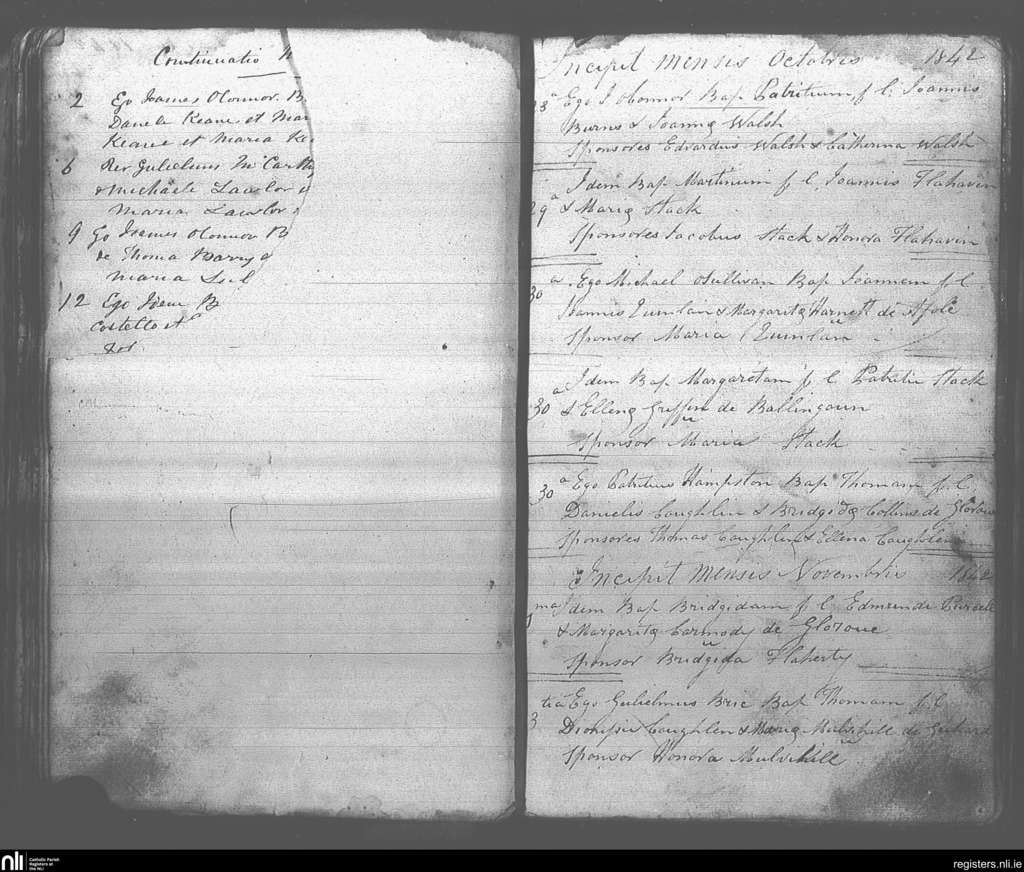 Continuatio
2 Ego Joames OConnor B
Daniele Keane et Mar
Keane et Maria Ke
6 Rev Gulielmus McCarth
& Michaele Lawlor
Maria Lawlor
9 Go Joames OConnor B
de Thoma Barry
Maria
12 Ego Idem B
Costello et
Incipit Mensis Octobris 1842
28a Ego J OConnor Bap Patritium f l Joannis
Burns & Joanna Walsh
Sponsores Edvardus Walsh & Catherina Walsh
Idem Bap Martinum f l Joannis Flahavin
29a & Maria Stack
Sponsores Jacobus Stack & Honora Flahavin
30a Ego Michael OSullivan Bap Joannem f l
Joannis Quinlan & Margarita Harnett de
Sponsor Maria Quinlan
Idem Bap Margaretam f l Patritii Stack
30a & Ellena Griffin de Ballingoun
Sponsor Maria Stack
30a Ego Patritius Hampston Bap Thomam f l
Danielis Coughlin & Bridgida Collins de
Sponsores Thomas Coughlin & Ellena Coughlin
Incipit Mensis Novembris 1842
1ma Idem Bap Bridgidam f l Edmundi Purcell
& Margarita Carmody de Gloroue
Sponsor Bridgida Flaherty
3tia Ego Gulielmus Bric Bap Thomam f l
Dionysii Coughlen & Maria Mulvihill de
Sponsor Honora Mulvihill
nli
Catholic Parish
Registers at
the NLI
registers.nli.ie